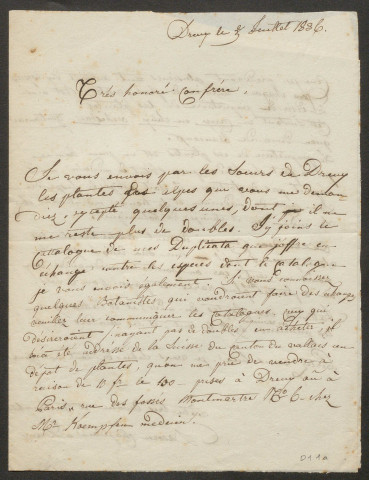 Dreux le 5 Juillet 1836.
Très honoré Confrère.
Je vous envois par les Soeurs de Dreux
les plantes des alpes que vous me deman-
dez, excepté quelques unes, dont il ne
me reste plus de doubles. J'y joins le
Catalogue de mes Duplicata que j'offre en
échange contre les espèces dont le catalogue
je vous envois également. Si vous connaissez
quelques Botanistes qui voudraient faire des échanges
veuillez leur communiquer les catalogues. ceux qui
désireraient (n'ayant pas de doubles) en acheter, il
m'a été adressé de la Suisse du canton du vallais un
dépot de plantes, qu'on me prie de vendre, à
raison de 10 fr le 100 prises à Dreux ou à
Paris, rue des fossés Montmartre No 6 chez
Mr Kaempfen medecin.
D11a